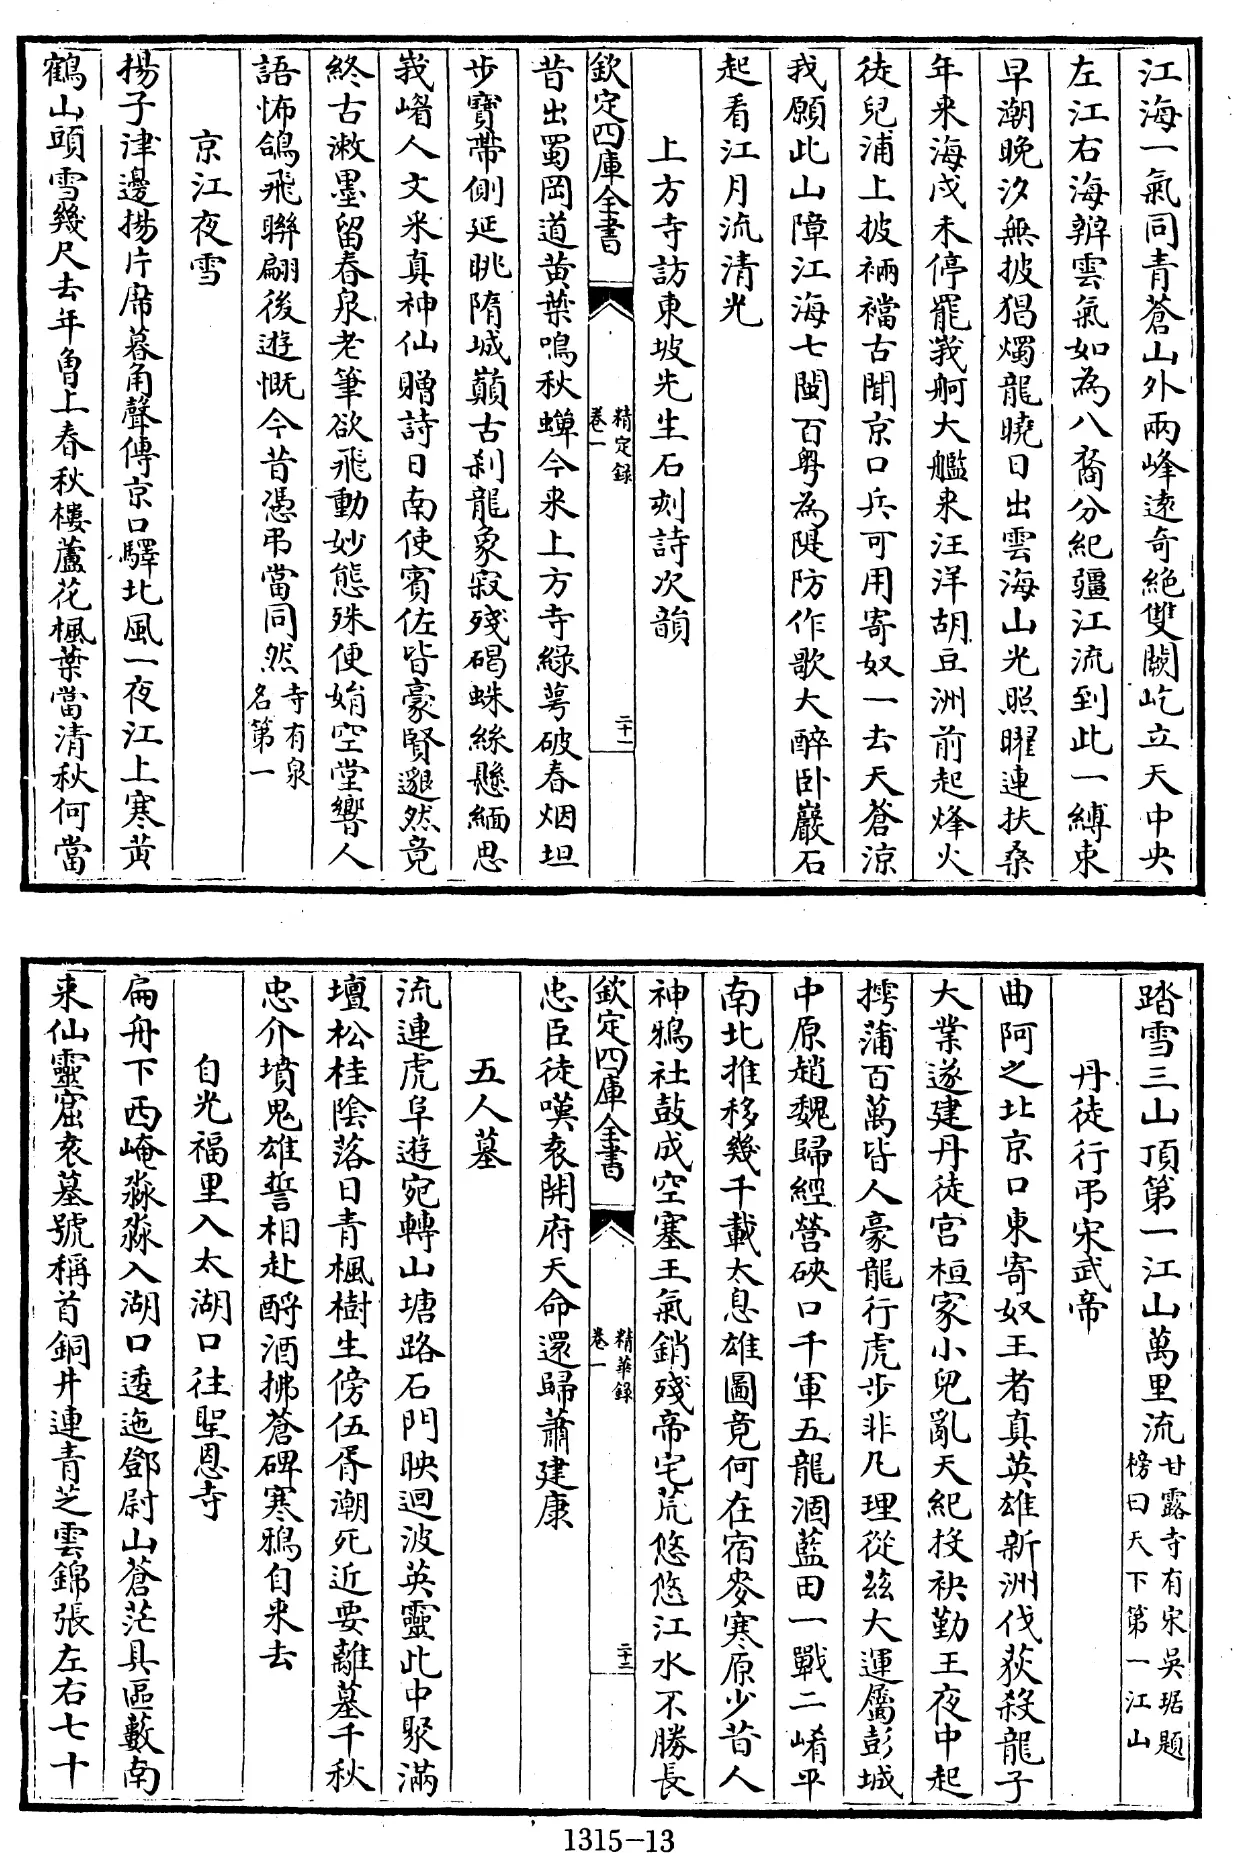 江海一氣同青蒼山外兩峰遠奇絶雙闕屹立天中央
左江右海辨雲氣如為八裔分紀疆江流到此一縛束
早潮晚汐無披猖燭龍曉日出雲海山光照曜連扶桑
年来海戍未停罷峩舸大艦来汪洋胡豆洲前起烽火
徒兒浦上披裲襠古聞京口兵可用寄奴一去天蒼涼
我願此山障江海七閩百粤為隄防作歌大醉卧巖石
起看江月流清光
上方寺訪東坡先生石刻詩次韻
欽定四庫全書
精定録
卷一
二十一
昔出蜀岡道黄葉鳴秋蟬今来上方寺緑萼破春烟坦
步寶帶側延眺隋城巔古刹龍象寂殘碣蛛絲懸緬思
峩嵋人文采真神仙贈詩日南使賓佐皆豪賢邈然竟
終古漱墨留春泉老筆欲飛動妙態殊便娟空堂響人
語怖鴿飛聯翩後遊慨今昔憑弔當同然
寺有泉
名第一
京江夜雪
揚子津邊揚片席暮角聲傳京口驛北風一夜江上寒黄
鶴山頭雪幾尺去年曾上春秋樓蘆花楓葉當清秋何當
踏雪三山頂第一江山萬里流
甘露寺有宋吳琚題
榜曰天下第一江山
丹徒行弔宋武帝
曲阿之北京口東寄奴王者真英雄新洲伐荻殺龍子
大業遂建丹徒宫桓家小兒亂天紀投袂勤王夜中起
摴蒲百萬皆人豪龍行虎步非凡理從兹大運屬彭城
中原趙魏歸經營硤口千軍五龍涸藍田一戰二崤平
南北推移幾千載太息雄圖竟何在宿麥寒原少昔人
神鴉社鼓成空塞王氣銷殘帝宅荒悠悠江水不勝長
欽定四庫全書
精華録
卷一
二十二
忠臣徒嘆袁開府天命還歸蕭建康
五人墓
流連虎阜遊宛轉山塘路石門映迴波英靈此中聚滿
壇松桂陰落日青楓樹生傍伍胥潮死近要離墓千秋
忠介墳鬼雄誓相赴酹酒拂蒼碑寒鴉自来去
自光福里入太湖口往聖恩寺
扁舟下西崦淼淼入湖口逶迤鄧尉山蒼茫具區藪南
来仙靈窟衰墓號稱首銅井連青芝雲錦張左右七十
1315-13